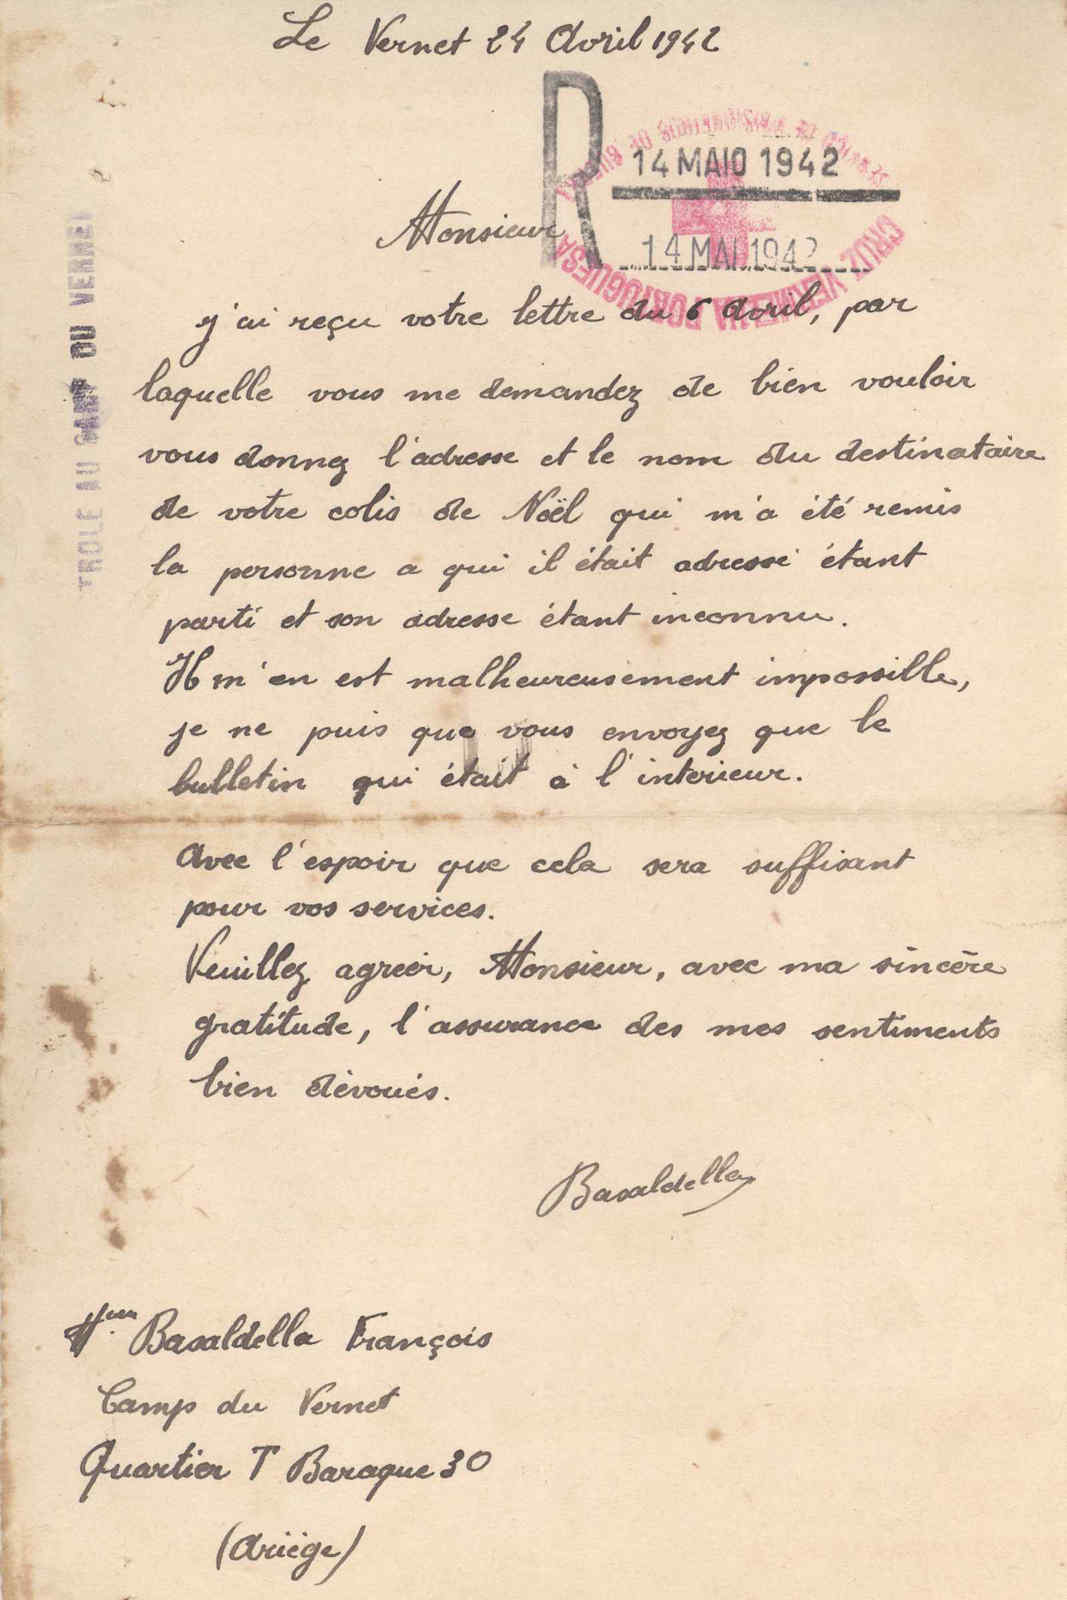 Le Vernet 24 Avril 1942
R
14 MAIO 1942
14 MAI. 1942
CRUZ VERMELHA PORTUGUESA
TROLE AU CAMP DU VERNET
Monsieur
j'ai reçu votre lettre du 6 Avril, par
laquelle vous me demandez de bien vouloir
vous donnez l'adresse et le nom du destinataire
de votre colis de Noël qui m'a été remis
la personne a qui il était adressé étant
parti et son adresse étant inconnu.
Il m'en est malheureusement impossible,
je ne puis que vous envoyez que le
bulletin qui était à l'interieur.
Avec l'espoir que cela sera suffisant
pour vos services.
Veuillez agréer, Monsieur, avec ma sincère
gratitude, l'assurance des mes sentiments
bien dévoués.
Basaldella
Basaldella François
Camp du Vernet
Quartier T Baraque 30
(Ariège)